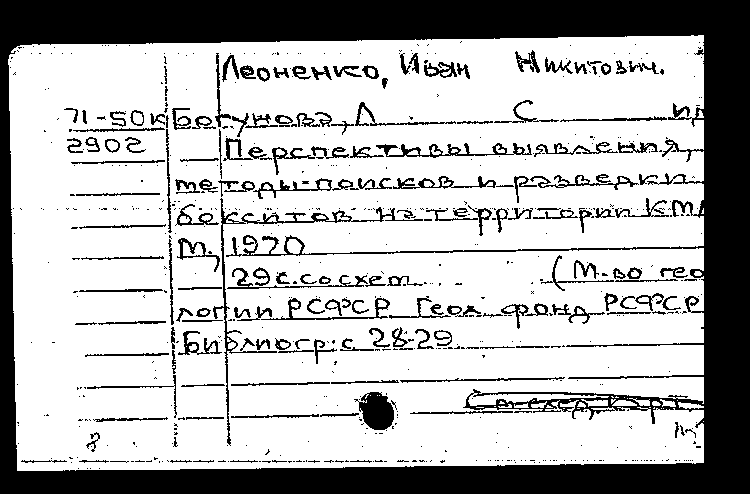 Леоненко, Иван Никитович.
71-50к Богунова, Л. С. и
2902 Перспективы выявления,
методы поисков и разведки
бокситов на территории КМА
М., 1970
29 с. со схем. (М-во гео
логии РСФСР Геол. фонд РСФСР
Библиогр: с 28-29
8